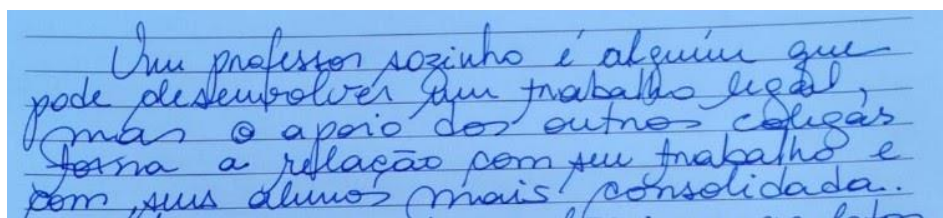 Um professor sozinho é alguém que
pode desenvolver um trabalho legal,
mas o apoio dos outros colegas
torna a relação com seu trabalho e
com seus alunos mais consolidada.